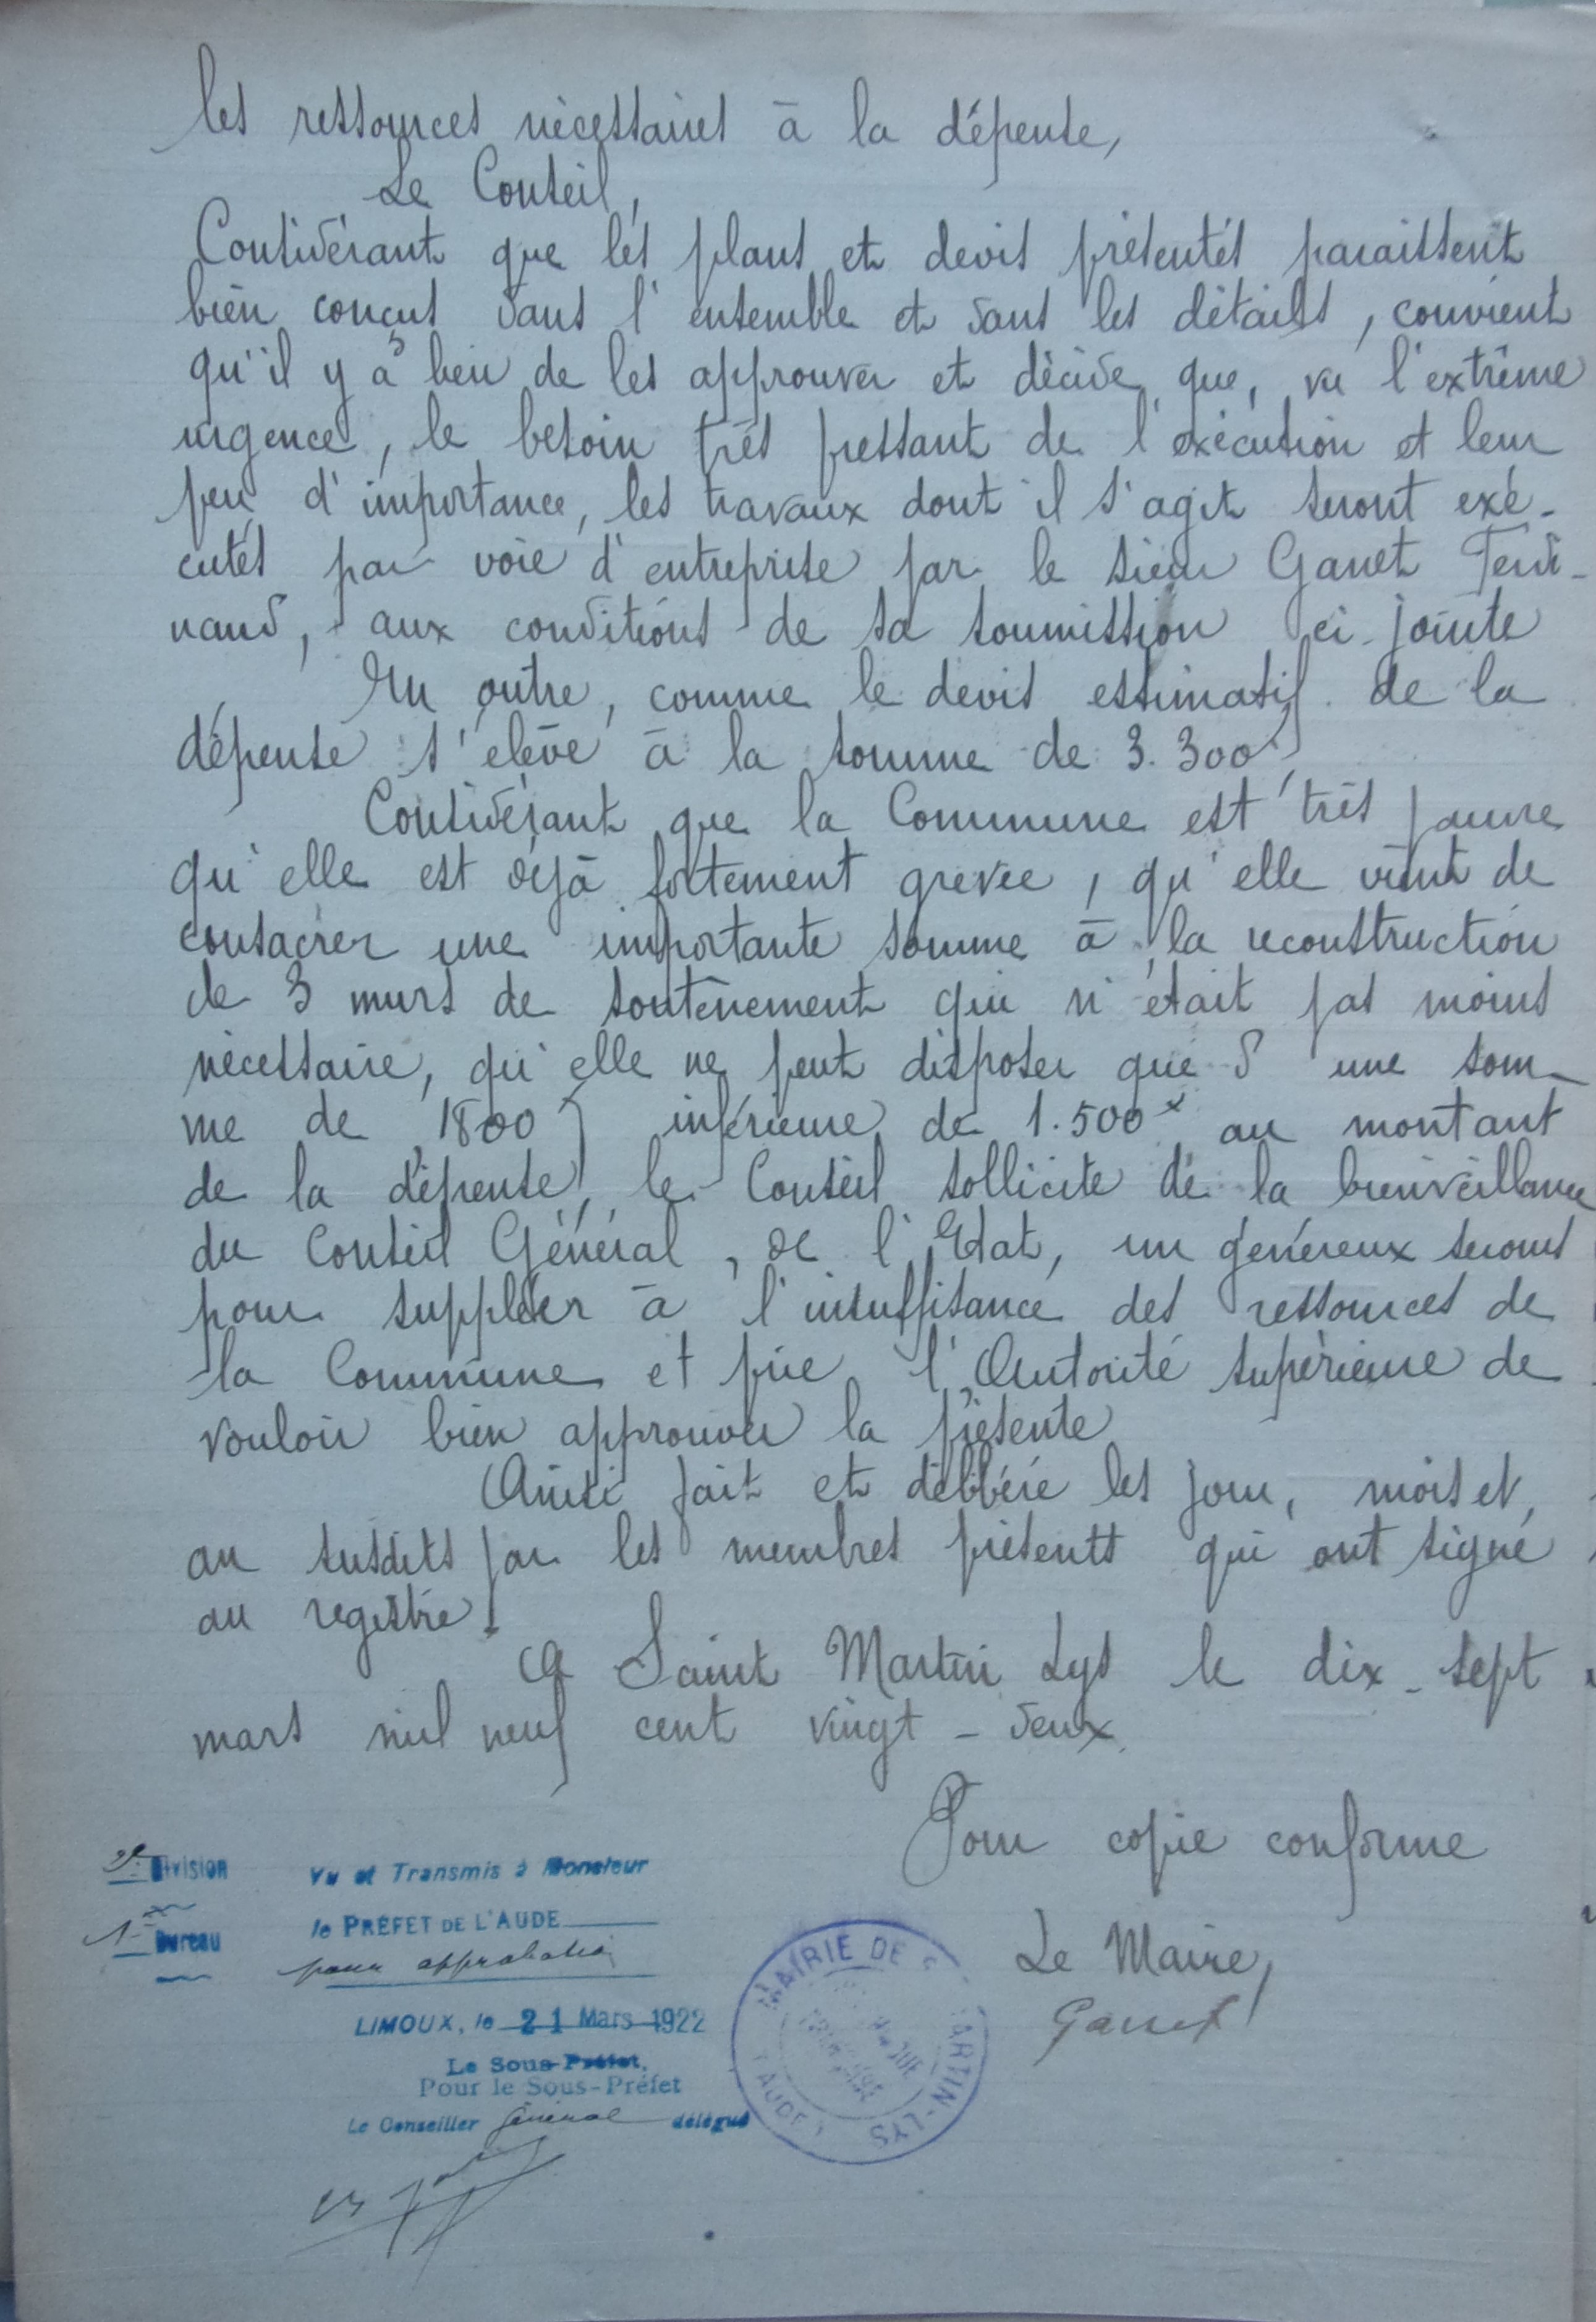 les ressources nécessaires à la dépense,
Le Conseil,
Considérant que les plans et devis présentés paraissent
bien conçus dans l'ensemble et dans les détails, convient
qu'il y a lieu de les approuver et décide que, vu l'extrême
urgence, le besoin très pressant de l'exécution et leur
peu d'importance, les travaux dont il s'agit seront exé-
cutés par voie d'entreprise par le sieur Ganet Ferdi-
nand, aux conditions de sa soumission ci-jointe
En outre, comme le devis estimatif de la
dépense s'elève à la somme de 3.300f,
Considérant que la Commune est très pauvre
qu'elle est déjà fortement grevée, qu'elle vient de
consacrer une importante somme à la reconstruction
de 3 murs de soutènement qui n'était pas moins
nécessaire, qu'elle ne peut disposer que d'une som-
me de 1800f inférieure de 1.500f au montant
de la dépense, le Conseil sollicite de la bienveillance
du Conseil Général, de l'Etat, un généreux secours
pour suppléer à l'insuffisance des ressources de
la Commune et prie l'Autorité supérieure de
vouloir bien approuver la présente
Ainsi fait et délibéré les jour, mois et
an susdits par les membres présents qui ont signé
au registre.
A Saint Martin Lys le dix-sept
mars mil neuf cent vingt-deux.
Pour copie conforme
Le Maire,
Ganet
2e Division
1er Bureau
Vu et Transmis à Monsieur
le PRÉFET DE L'AUDE
pour approbation
LIMOUX, le 21 Mars 1922
Le Sous-Préfet,
Pour le Sous-Préfet
Le Conseiller Général délégué
MAIRIE DE S MARTIN-LYS
(AUDE)